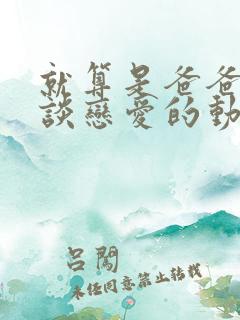 就算是爸爸
談戀愛的動
呂闖
未任同意禁止轉載